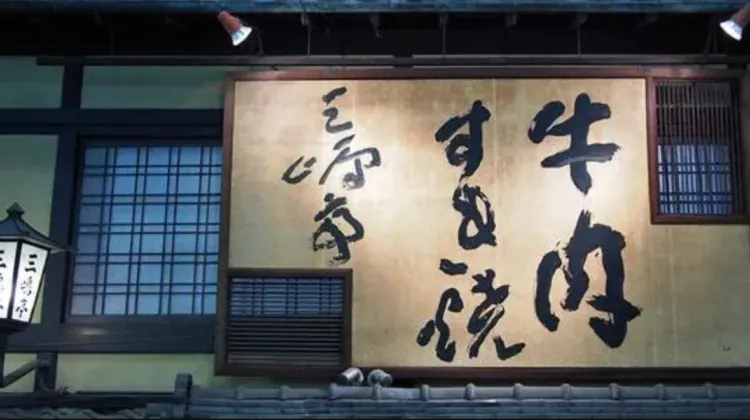 牛肉
すき焼
三嶋亭
三嶋亭